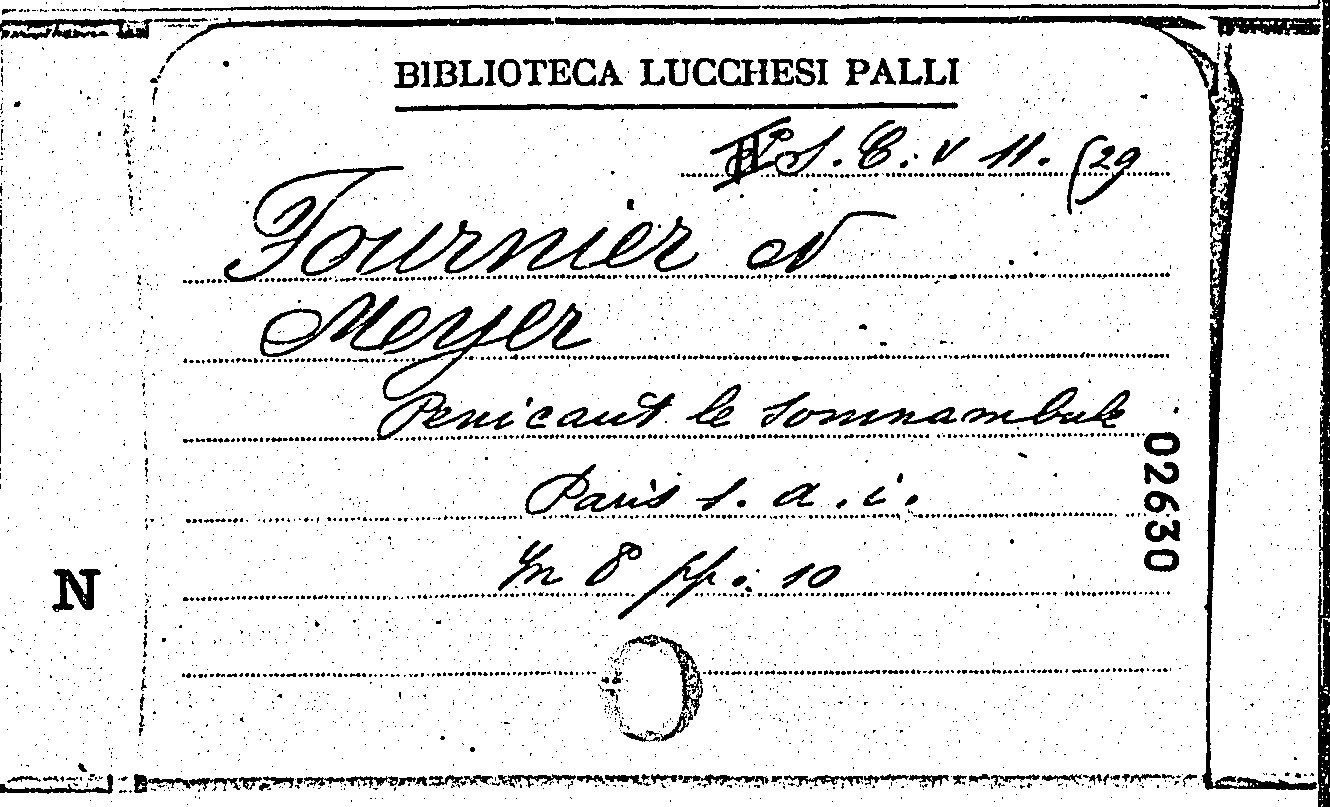 BIBLIOTECA LUCCHESI PALLI
S. C. V 11. (29
Fournier N
Meyer
Penicaut le somnambule
Paris s. a. i.
In 8º pp. 10
02630
N